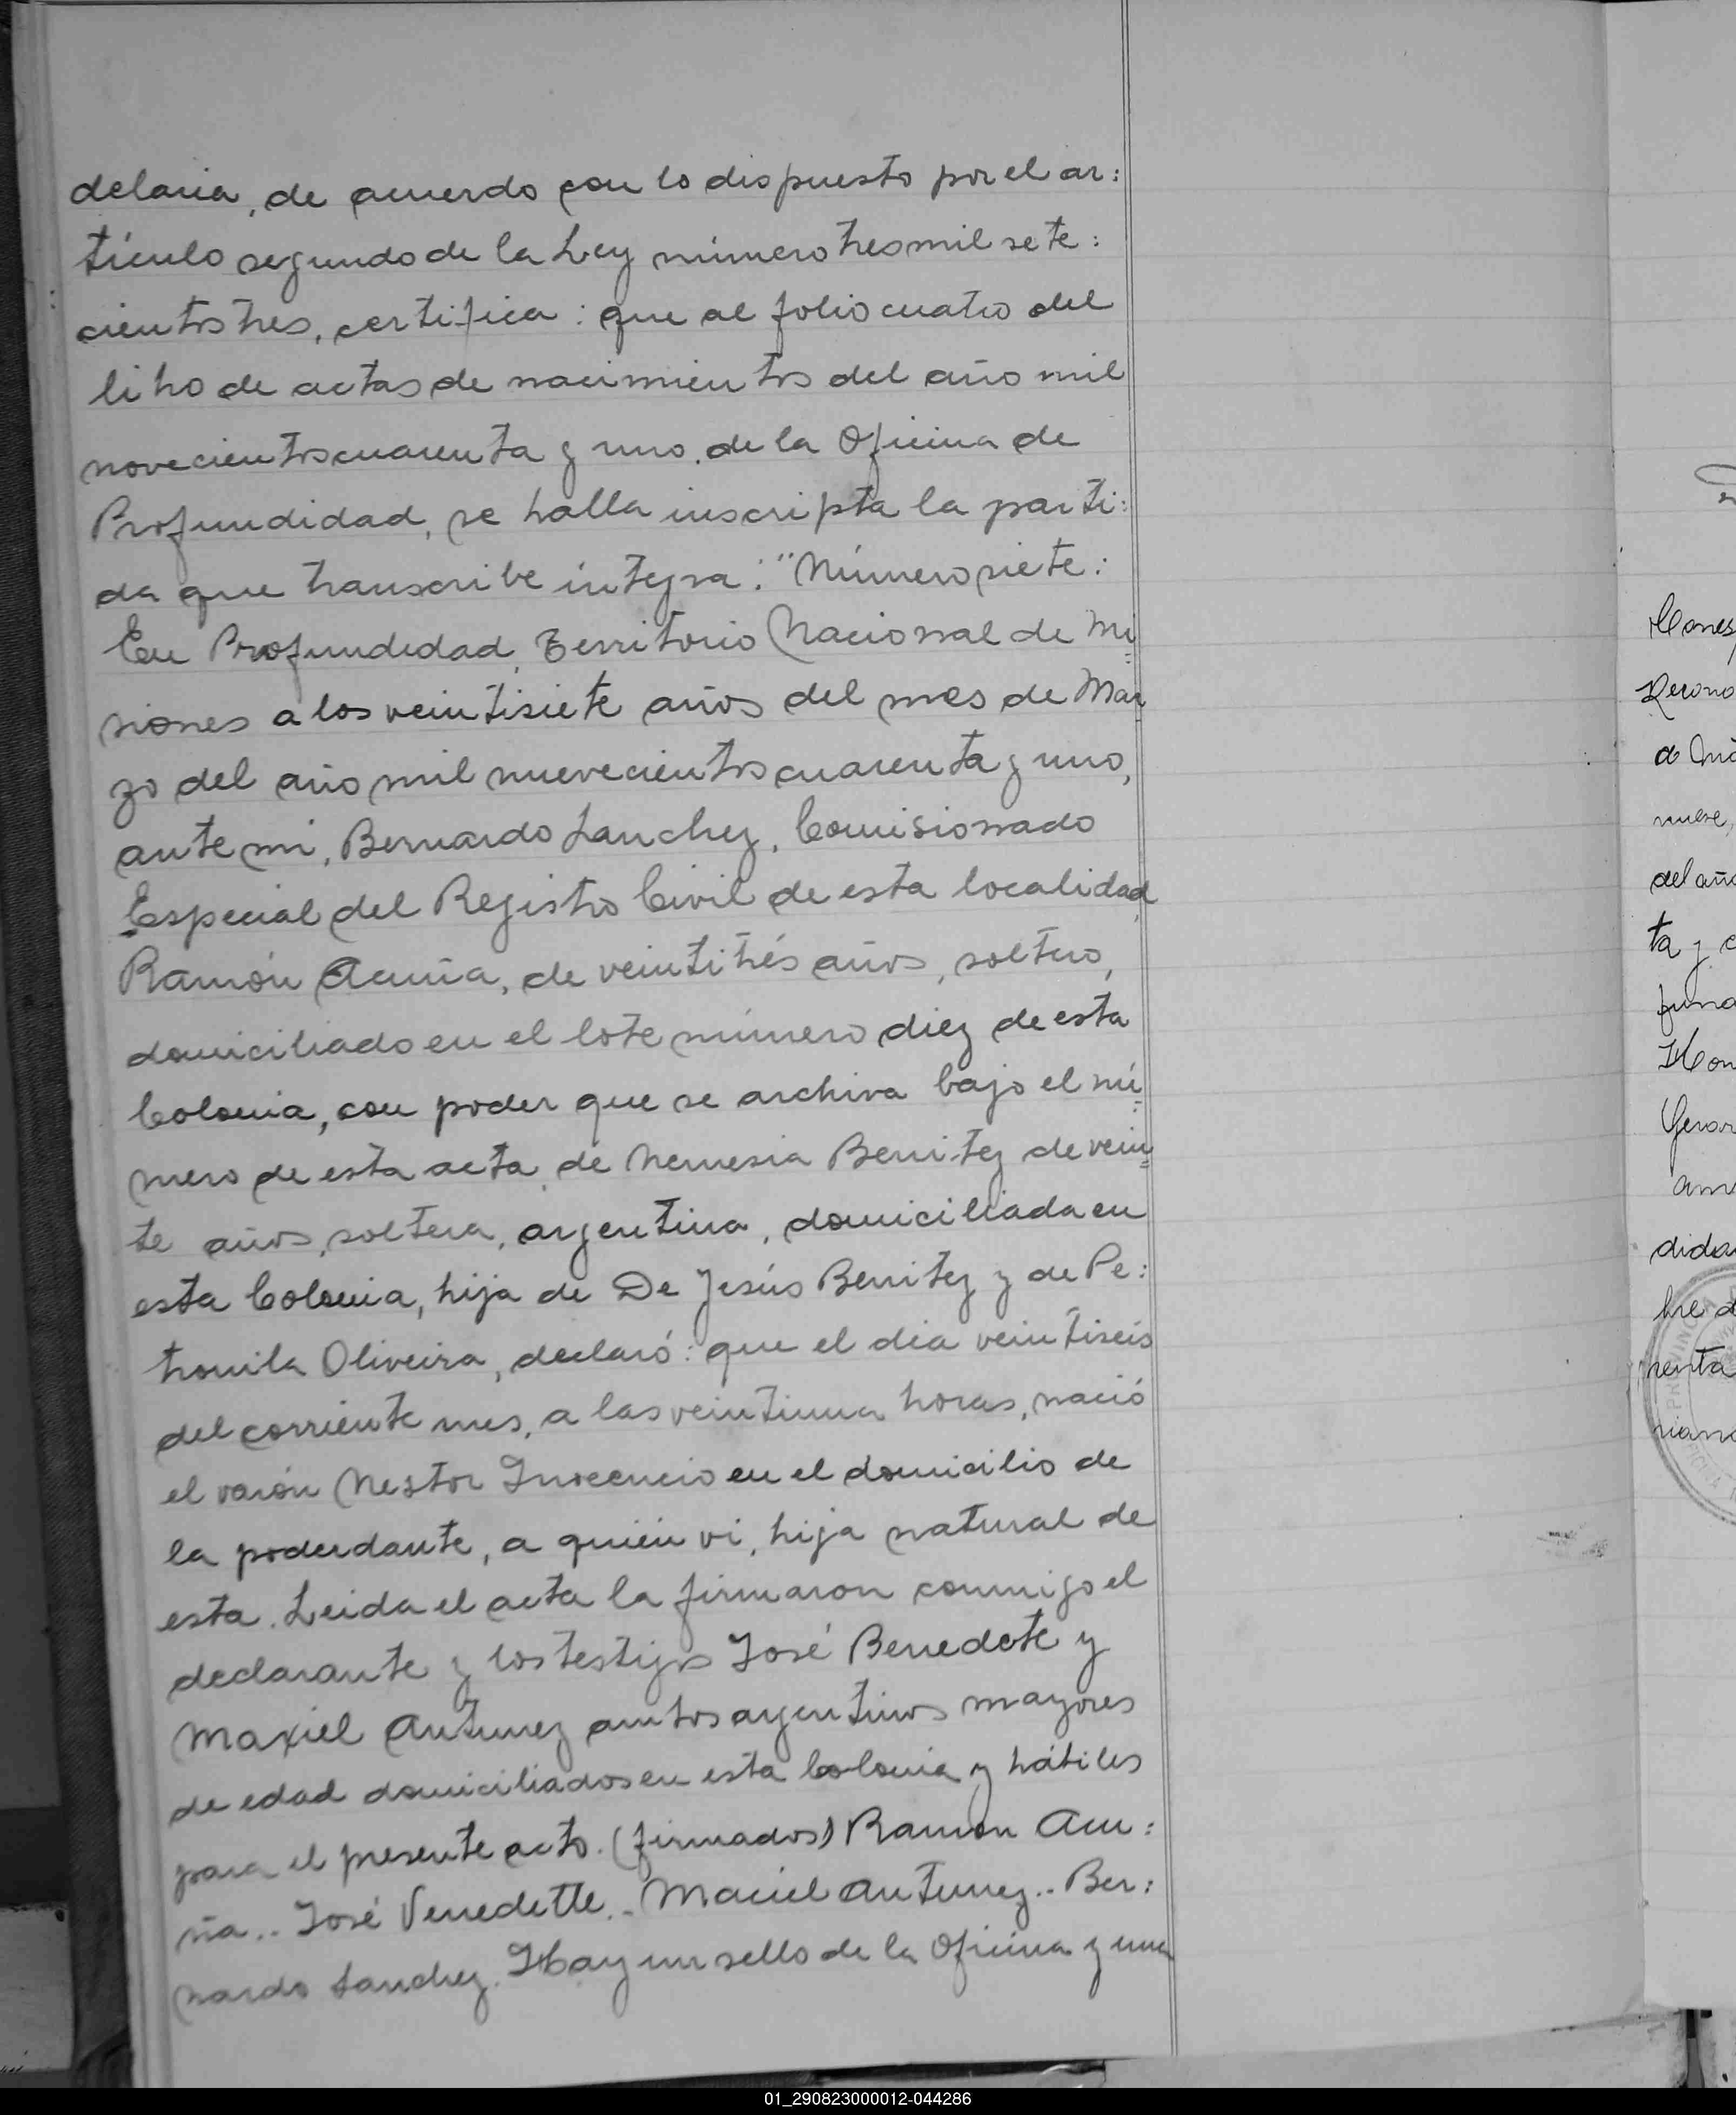 delaria, de acuerdo con lo dispuesto por el ar:
tículo segundo de la Ley número tres mil sete:
cientos tres, certifica: que al folio cuatro del
libro de actas de nacimientos del año mil
novecientos cuarenta y uno, de la Oficina de
Profundidad, se halla inscripta la parti:
da que transcribe íntegra: "Número siete:
En Profundidad, Territorio Nacional de Mi
siones a los veintisiete años del mes de Mar
zo del año mil nuevecientos cuarenta y uno,
ante mi, Bernardo Sanchez, Comisionado
Especial del Registro Civil de esta localidad,
Ramón Acuña, de veintitrés años, soltero,
domiciliado en el lote número diez de esta
Colonia, con poder que se archiva bajo el nú
mero de esta acta, de Nemesia Benitez de vein
te años, soltera, argentina, domiciliada en
esta Colonia, hija de De Jesús Benitez y de Pe:
tronila Oliveira, declaró: que el día veintiseis
del corriente mes, a las veintiuna horas, nació
el varón Nestor Inocencio en el domicilio de
la poderdante, a quién vi, hija natural de
esta. Leida el acta la firmaron conmigo el
declarante y los testigos José Benedete y
Maxiel Antunez ambos argentinos mayores
de edad domiciliados en esta Colonia y hábiles
para el presente acto. (firmados) Ramon Acu:
ña.. José Venedette.. Maciel Antunez.. Ber:
nardo Sanchez. Hay un sello de la Oficina y una
del año
ta y
dida
01_290823000012-044286